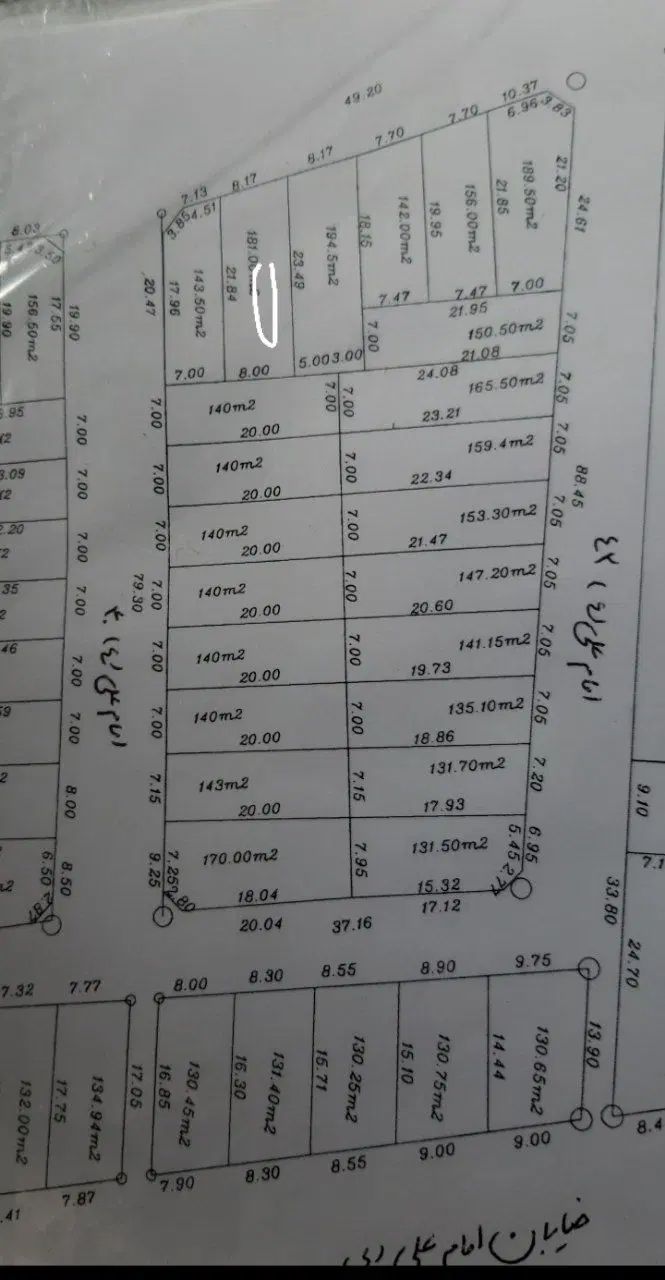 49.20
10.37
6.96 3.83
7.70
7.70
8.17
8.17
7.13
4.51
3.85
21.20
24.61
189.50m2
21.85
156.00m2
19.95
142.00m2
18.15
194.5m2
23.49
181.00
21.84
143.50m2
17.96
20.47
7.00
7.47
7.47
21.95
150.50m2
7.05
7.00
21.08
5.00 3.00
8.00
7.00
24.08
165.50m2
7.05
7.00
7.00
140m2
7.00
20.00
23.21
159.4m2
7.05
140m2
7.00
7.00
20.00
22.34
88.45
153.30m2
7.05
140m2
7.00
7.00
20.00
21.47
147.20m2
7.05
140m2
7.00
7.00
79.30
20.00
20.60
141.15m2
7.05
140m2
7.00
7.00
20.00
19.73
135.10m2
7.05
140m2
7.00
7.00
20.00
18.86
131.70m2
7.20
143m2
7.15
7.15
20.00
17.93
131.50m2
6.95
5.45
2.77
170.00m2
7.95
7.25
9.25
2.80
18.04
15.32
17.12
20.04
37.16
امام علی (ع) ۴۲
امام علی (ع) ۴۰
8.03
3.50
17.55
19.90
156.50m2
19.90
7.00
7.00
7.00
7.00
7.00
7.00
8.00
8.50
6.50
2.87
9.10
33.80
24.70
8.00
8.30
8.55
8.90
9.75
7.32
7.77
13.90
130.65m2
14.44
130.75m2
15.10
130.25m2
15.71
131.40m2
16.30
130.45m2
16.85
17.05
134.94m2
17.75
132.00m2
7.90
8.30
8.55
9.00
9.00
7.87
خیابان امام علی